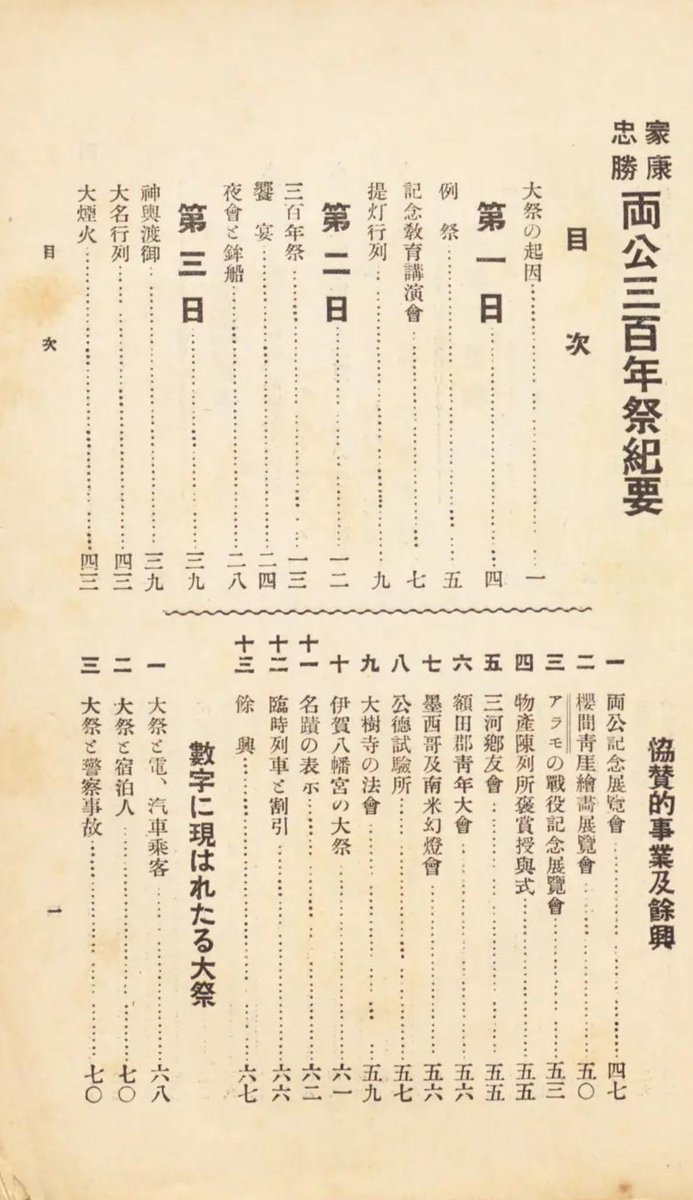 家康
忠勝
両公三百年祭紀要
目次
大祭の起因 一
第一日 四
例祭 五
記念敎育講演會 七
提灯行列 九
第二日 一二
三百年祭 一三
饗宴 二四
夜會と鉾船 二八
第三日 三九
神輿渡御 三九
大名行列 四三
大煙火 四三
協賛的事業及餘興
一 両公記念展覽會 四七
二 櫻間靑厓繪畵展覽會 五〇
三 アラモの戰役記念展覽會 五三
四 物產陳列所褒賞授與式 五五
五 三河鄕友會 五五
六 額田郡靑年大會 五六
七 墨西哥及南米幻燈會 五六
八 公德試驗所 五七
九 大樹寺の法會 五九
十 伊賀八幡宮の大祭 六一
十一 名蹟の表示 六二
十二 臨時列車と割引 六六
十三 餘興 六七
數字に現はれたる大祭
一 大祭と電、汽車乘客 六八
二 大祭と宿泊人 七〇
三 大祭と警察事故 七〇
目次
一